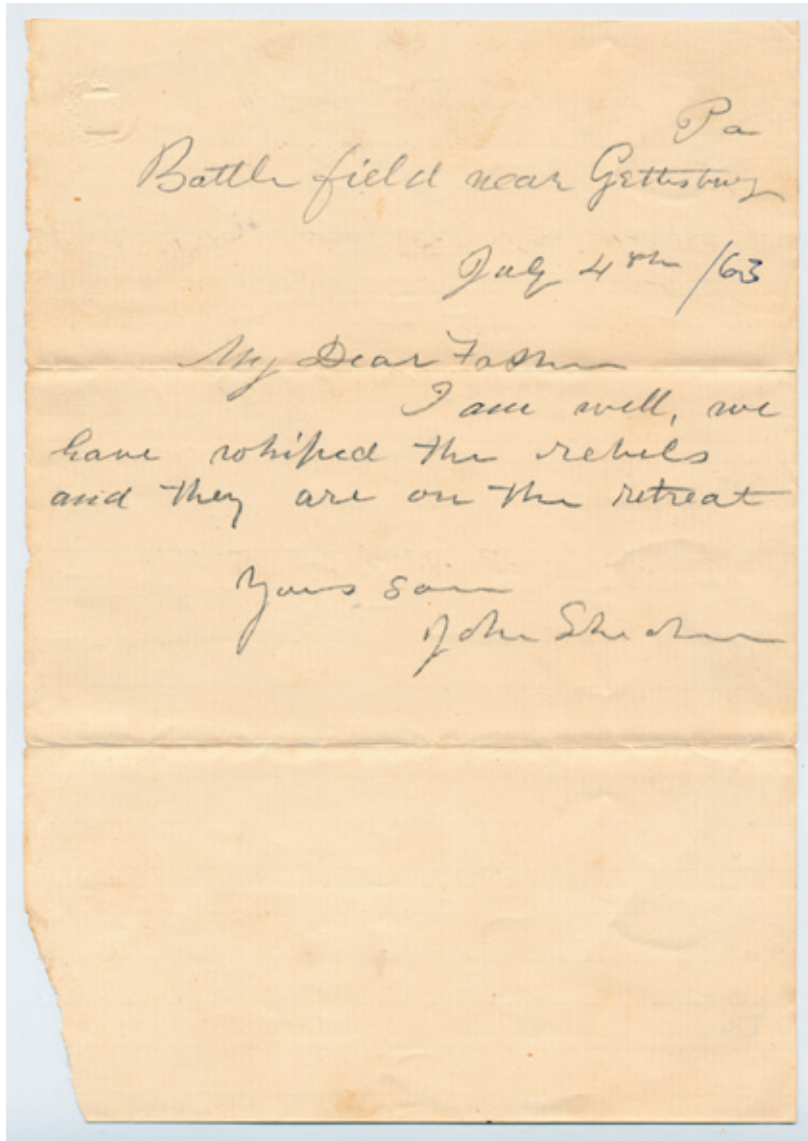 Pa
Battle field near Gettisburg
July 4th /63
My Dear Father
I am well, we
have whiped the rebels
and they are on the retreat
Yours Son
John